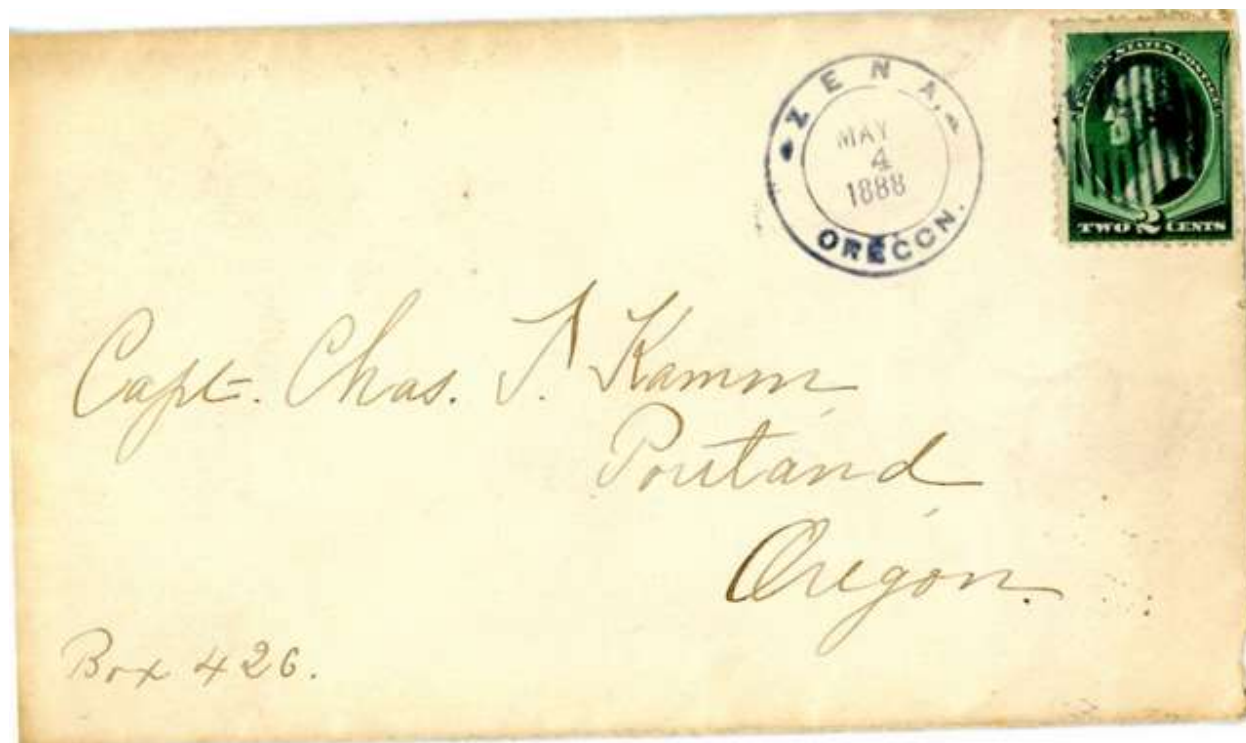 ZENA,
MAY
4
1888
OREGON.
UNITED STATES POSTAGE
TWO 2 CENTS
Capt. Chas. T. Kamm
Portland
Oregon.
Box 426.